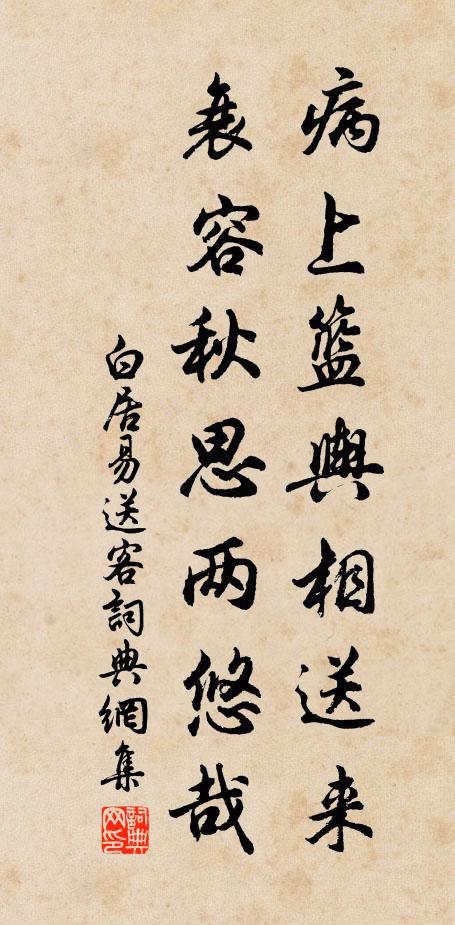 病上籃輿相送来
衰容秋思两悠哉
白居易送客詞典網集
詞典网印